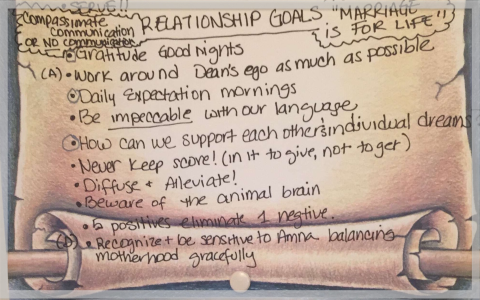 SERVE!!
Compassionate communication OR NO communication
RELATIONSHIP GOALS
"MARRIAGE IS FOR LIFE"!!
• Gratitude Good Nights
(A) • Work around Dean's ego as much as possible
• Daily Expectation mornings
• Be impeccable with our language
• How can we support each other's individual dreams?
• Never keep score! (in it to give, not to get)
• Diffuse + Alleviate!
• Beware of the animal brain
• 5 positives eliminate 1 negtive.
(D) • Recognize + be sensitive to Amna balancing
motherhood gracefully